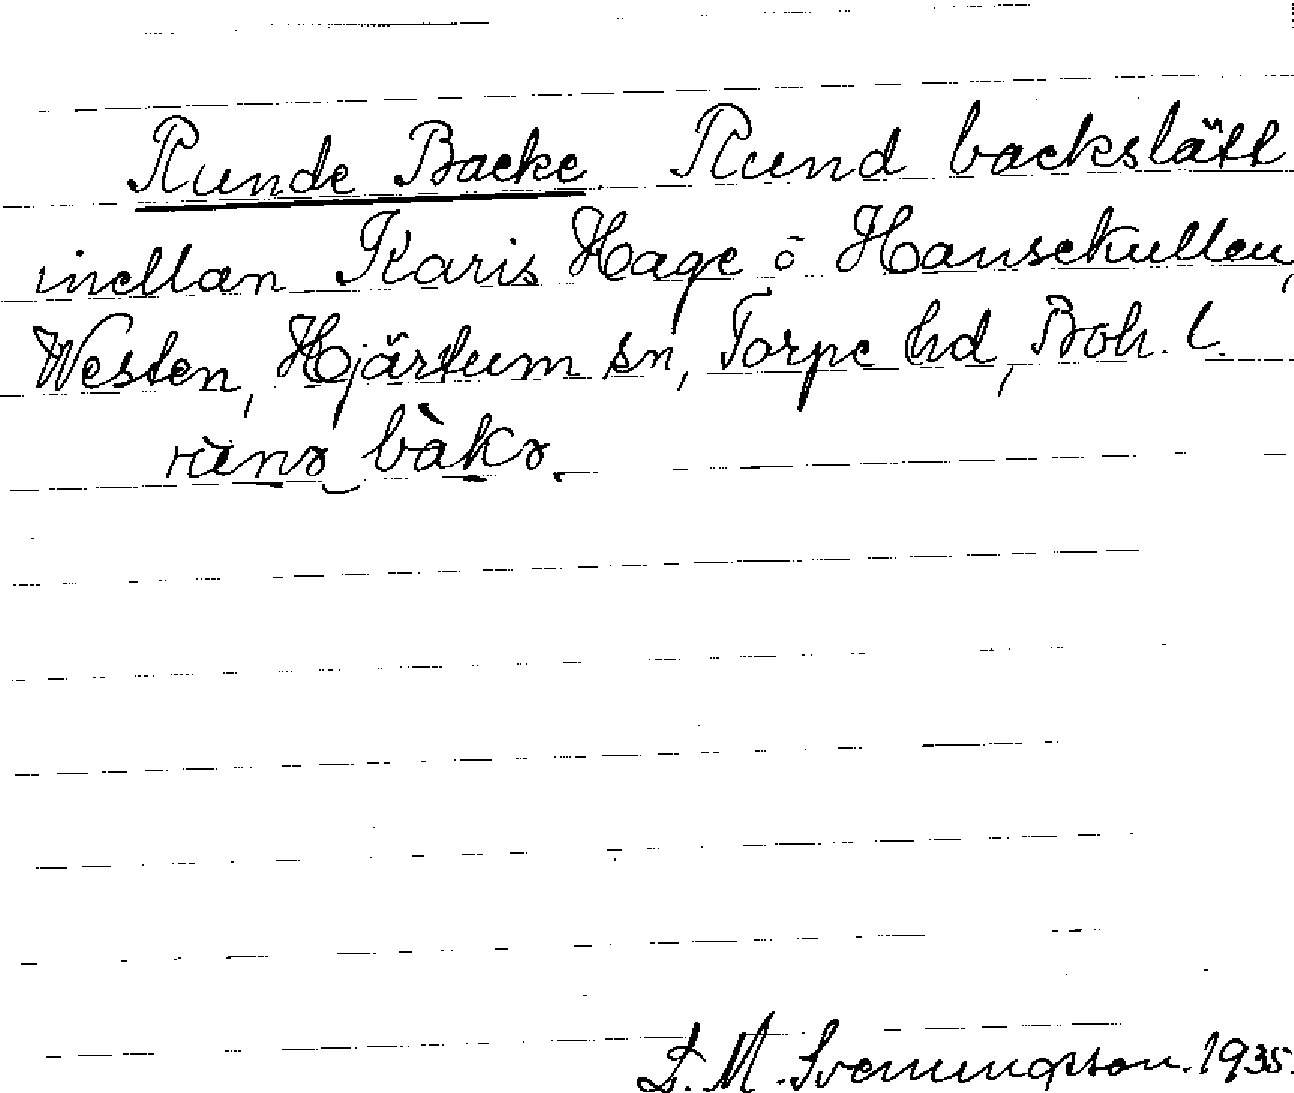 Runde Backe Rund backslätt
mellan Karis Hage o Hansekullen,
Westen, Hjärtum sn, Torpe hd, Boh. l.
rùnɤ bàkɤ.
S. M. Svenungsson. 1935.